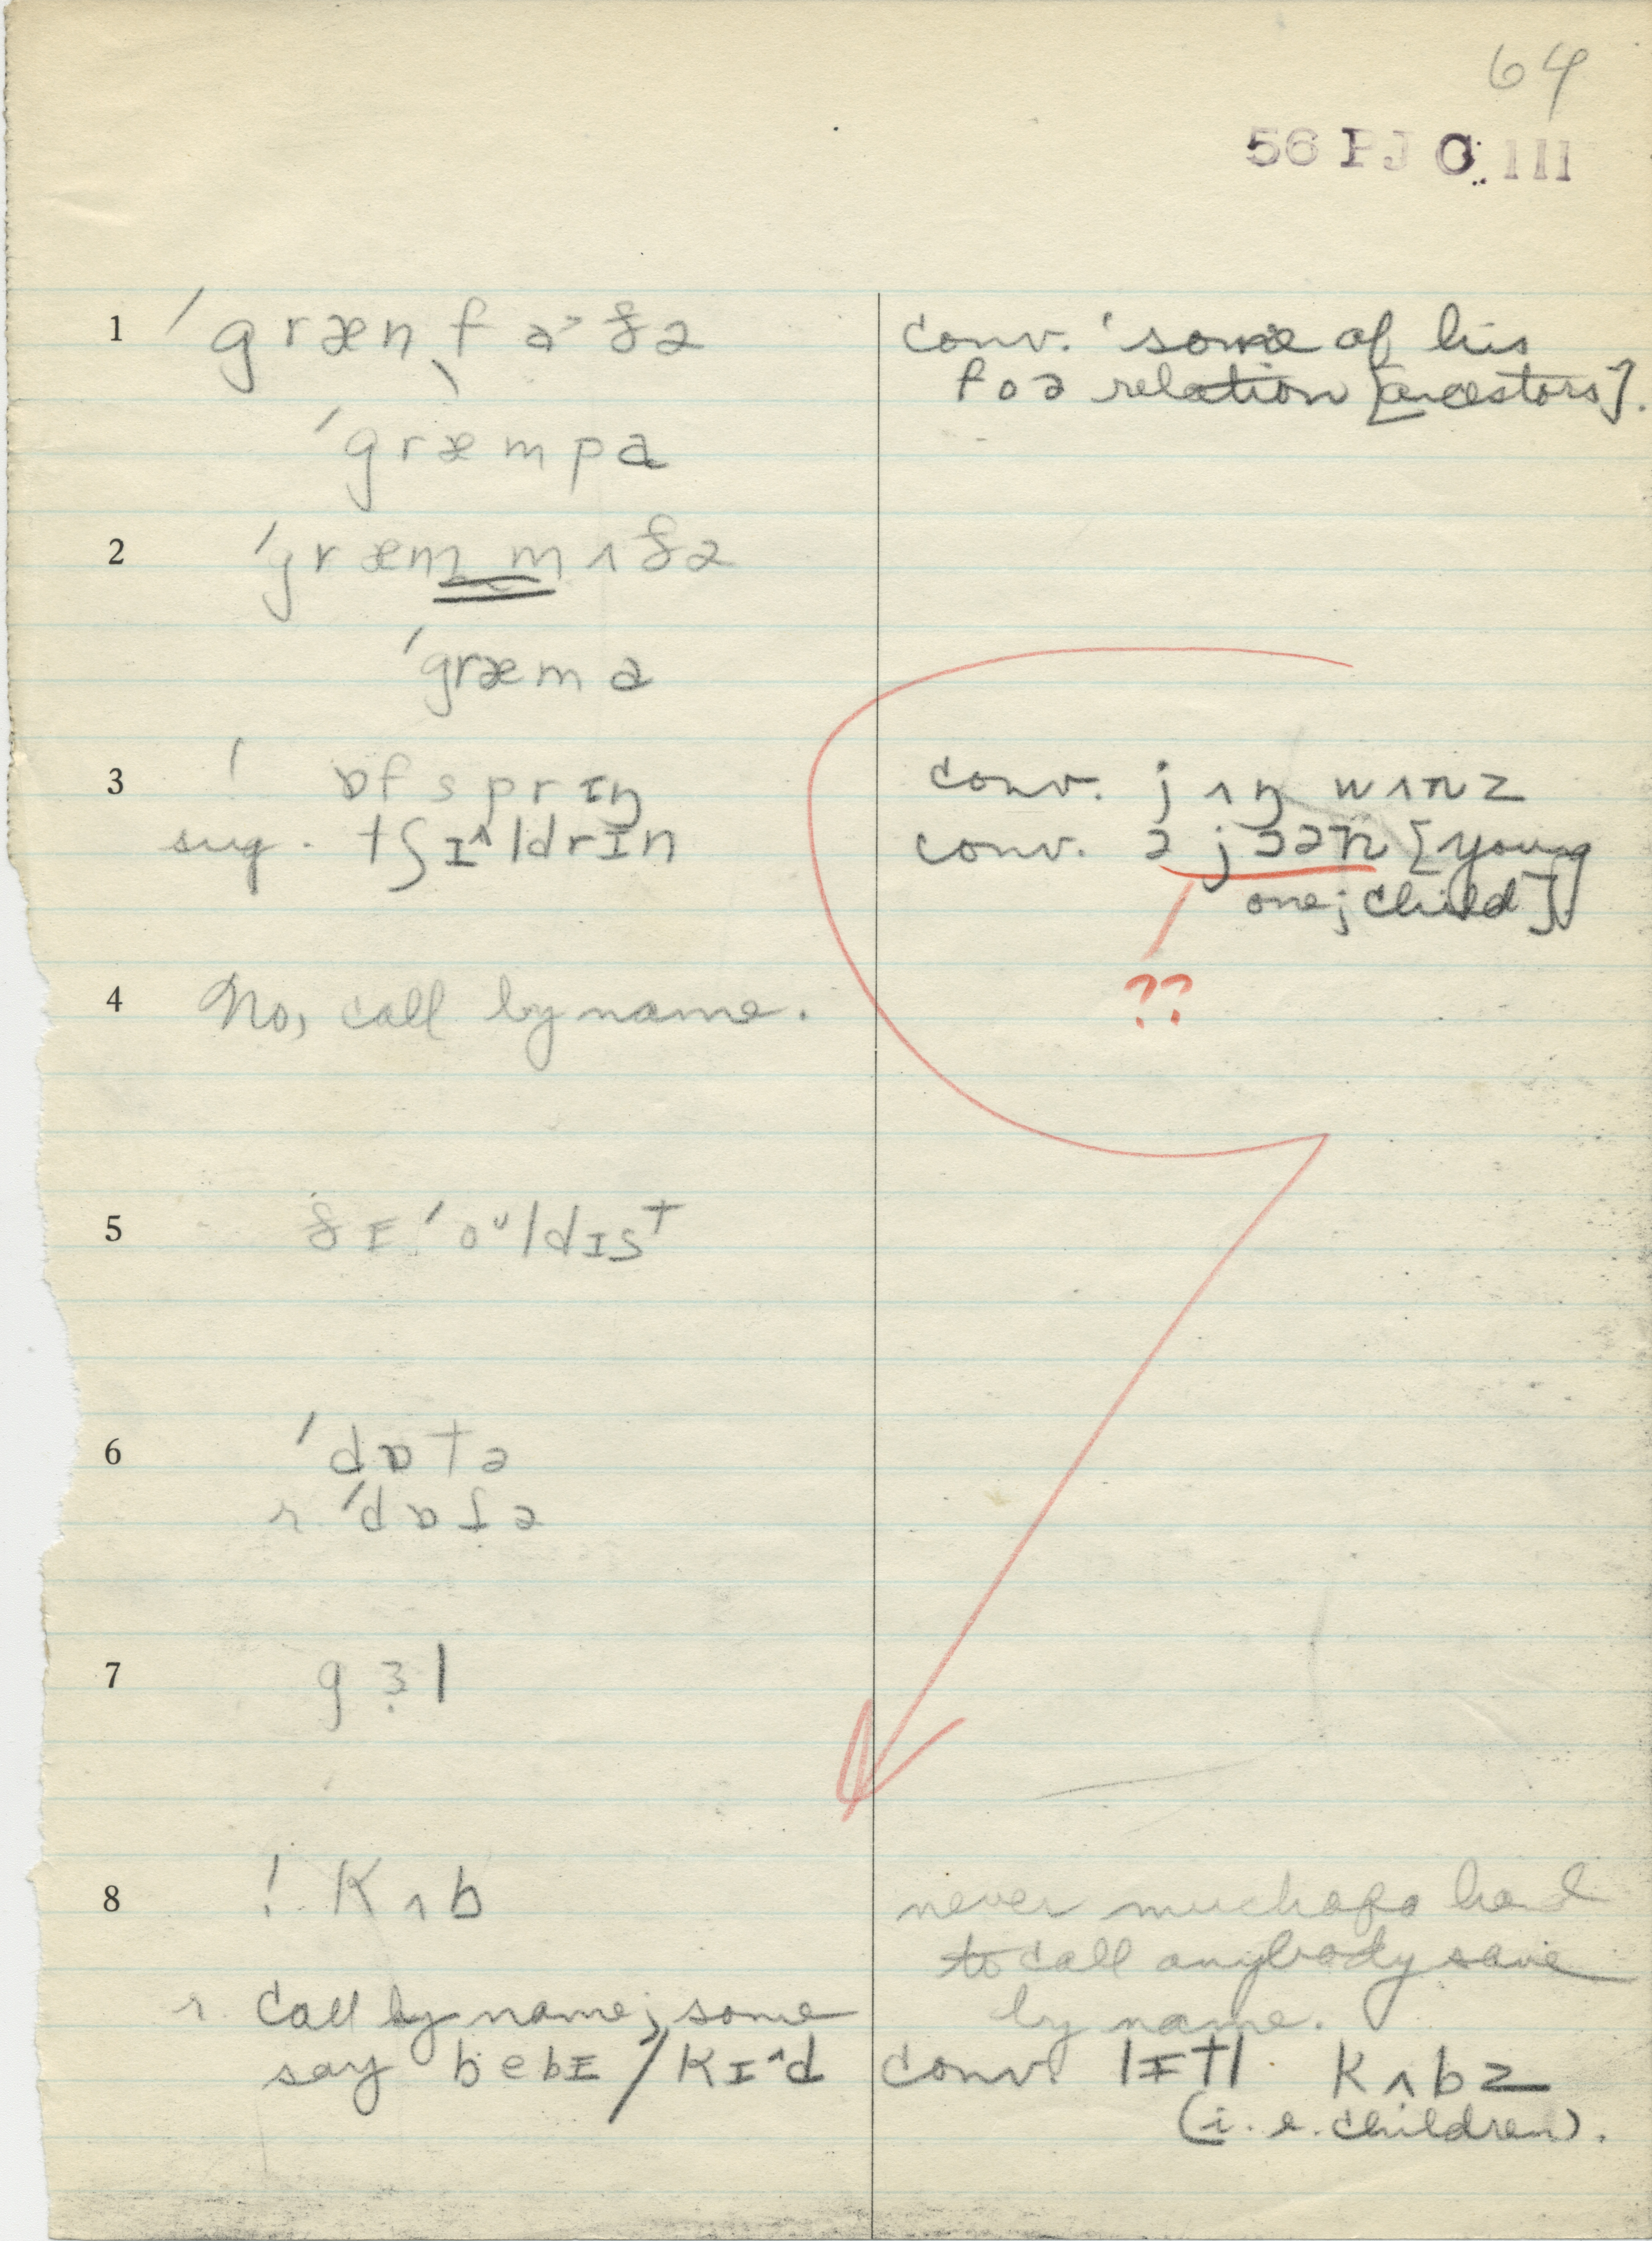 64
56 PJ C 111
1 ˈgrænˌfaᵊðə
conv. ˈsome of his
foə relation [ancestors].
ˈgræmpa
2 ˈgræm mʌðə
ˈgræma
3 ! ɒfsprɪŋ
conv. jʌŋ wʌnz
sug. tʃɪ^ldrɪn
conv. ə jɔən [young
one; child]
??
4 No, call by name.
5 ðɪ ˈoᵘldɪst
6 ˈdɒtə
r. ˈdɒfə
7 gɜl
8 ! kʌb
never much of a hand
to call anybody save
r. call by name; some
by name.
say bebɪ / kɪ^d
conv. lɪtl kʌbz
(i.e. children).